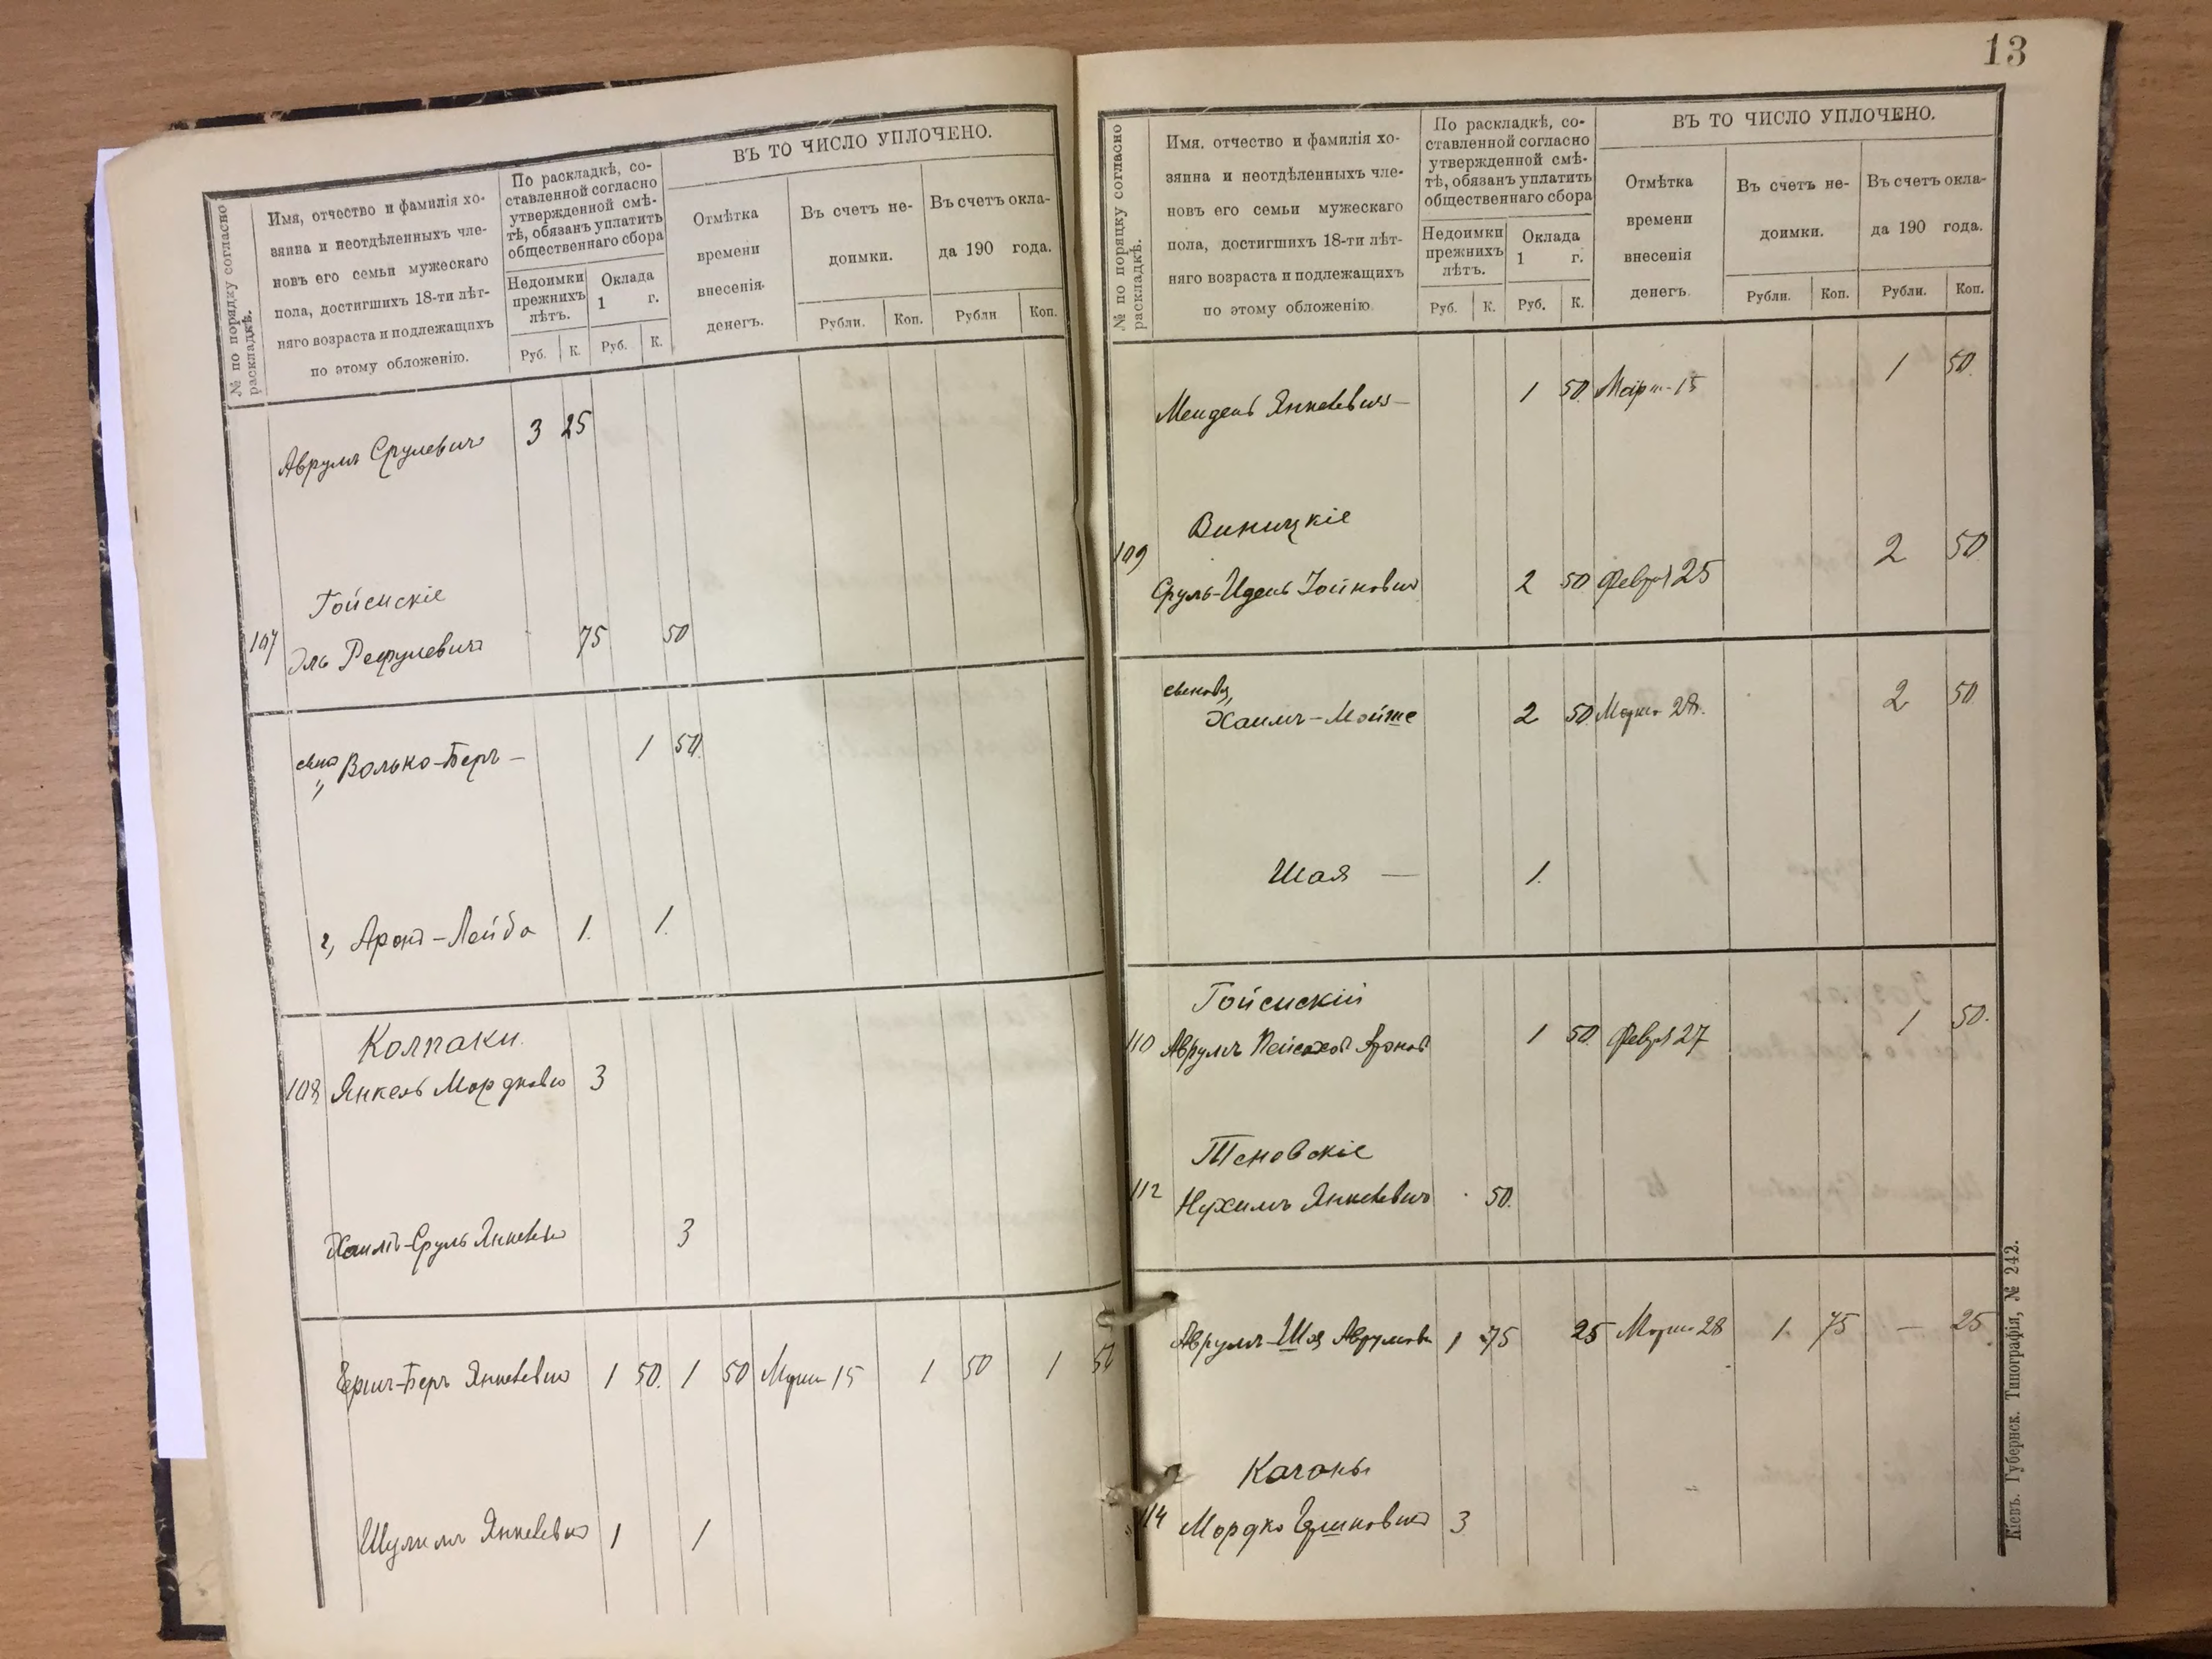 № по порядку согласно раскладкѣ.
Имя, отчество и фамилія хо-
зяина и неотдѣленныхъ чле-
новъ его семьи мужескаго
пола, достигшихъ 18-ти лѣт-
няго возраста и подлежащихъ
по этому обложенію.
По раскладкѣ, со-
ставленной согласно
утвержденной смѣ-
тѣ, обязанъ уплатить
общественнаго сбора
Недоимки
прежнихъ
лѣтъ.
Оклада
1 г.
Руб. К. Руб. К.
ВЪ ТО ЧИСЛО УПЛОЧЕНО.
Отмѣтка
времени
внесенія.
денегъ.
Въ счетъ не-
доимки.
Въ счетъ окла-
да 190 года.
Рубли. Коп. Рубли Коп.
Аврумъ Срулевичъ 3 25
Гойсискіе
107 Эль Рефулевичъ 75 50
Волько-Беръ - 1 50
2, Аронъ-Лейба 1. 1.
Колпаки.
108 Янкель Мордковъ 3
Хаимъ-Сруль Янкелев 3
Гершъ-Беръ Янкелевичъ 1 50. 1 50 Март 15 1 50 1 50
Шулимъ Янкелевичъ 1 1
13
№ по порядку согласно раскладкѣ.
Имя, отчество и фамилія хо-
зяина и неотдѣленныхъ чле-
новъ его семьи мужескаго
пола, достигшихъ 18-ти лѣт-
няго возраста и подлежащихъ
по этому обложенію.
По раскладкѣ, со-
ставленной согласно
утвержденной смѣ-
тѣ, обязанъ уплатить
общественнаго сбора
Недоимки
прежнихъ
лѣтъ.
Оклада
1 г.
Руб. К. Руб. К.
ВЪ ТО ЧИСЛО УПЛОЧЕНО.
Отмѣтка
времени
внесенія
денегъ.
Въ счетъ не-
доимки.
Въ счетъ окла-
да 190 года.
Рубли. Коп. Рубли. Коп.
Мендель Янкелевичъ - 1 50 Март 15 1 50
Виницкіе
109 Сруль-Идель Іойновичъ 2 50 Февр 25 2 50
Хаимъ-Мойше 2 50 Марта 28. 2 50
Шая — 1.
Гойсискій
110 Аврумъ Пейсахов Аронов 1 50 Февр 27 1 50.
Тсновскіе
112 Нухимъ Янкелевичъ 50.
Аврумъ-Шая Аврумовъ 1 75 25 Марта 28 1. 75 — 25
Каганы
114 Мордко Гершковичъ 3
Кіевъ. Губернск. Типографія, № 242.